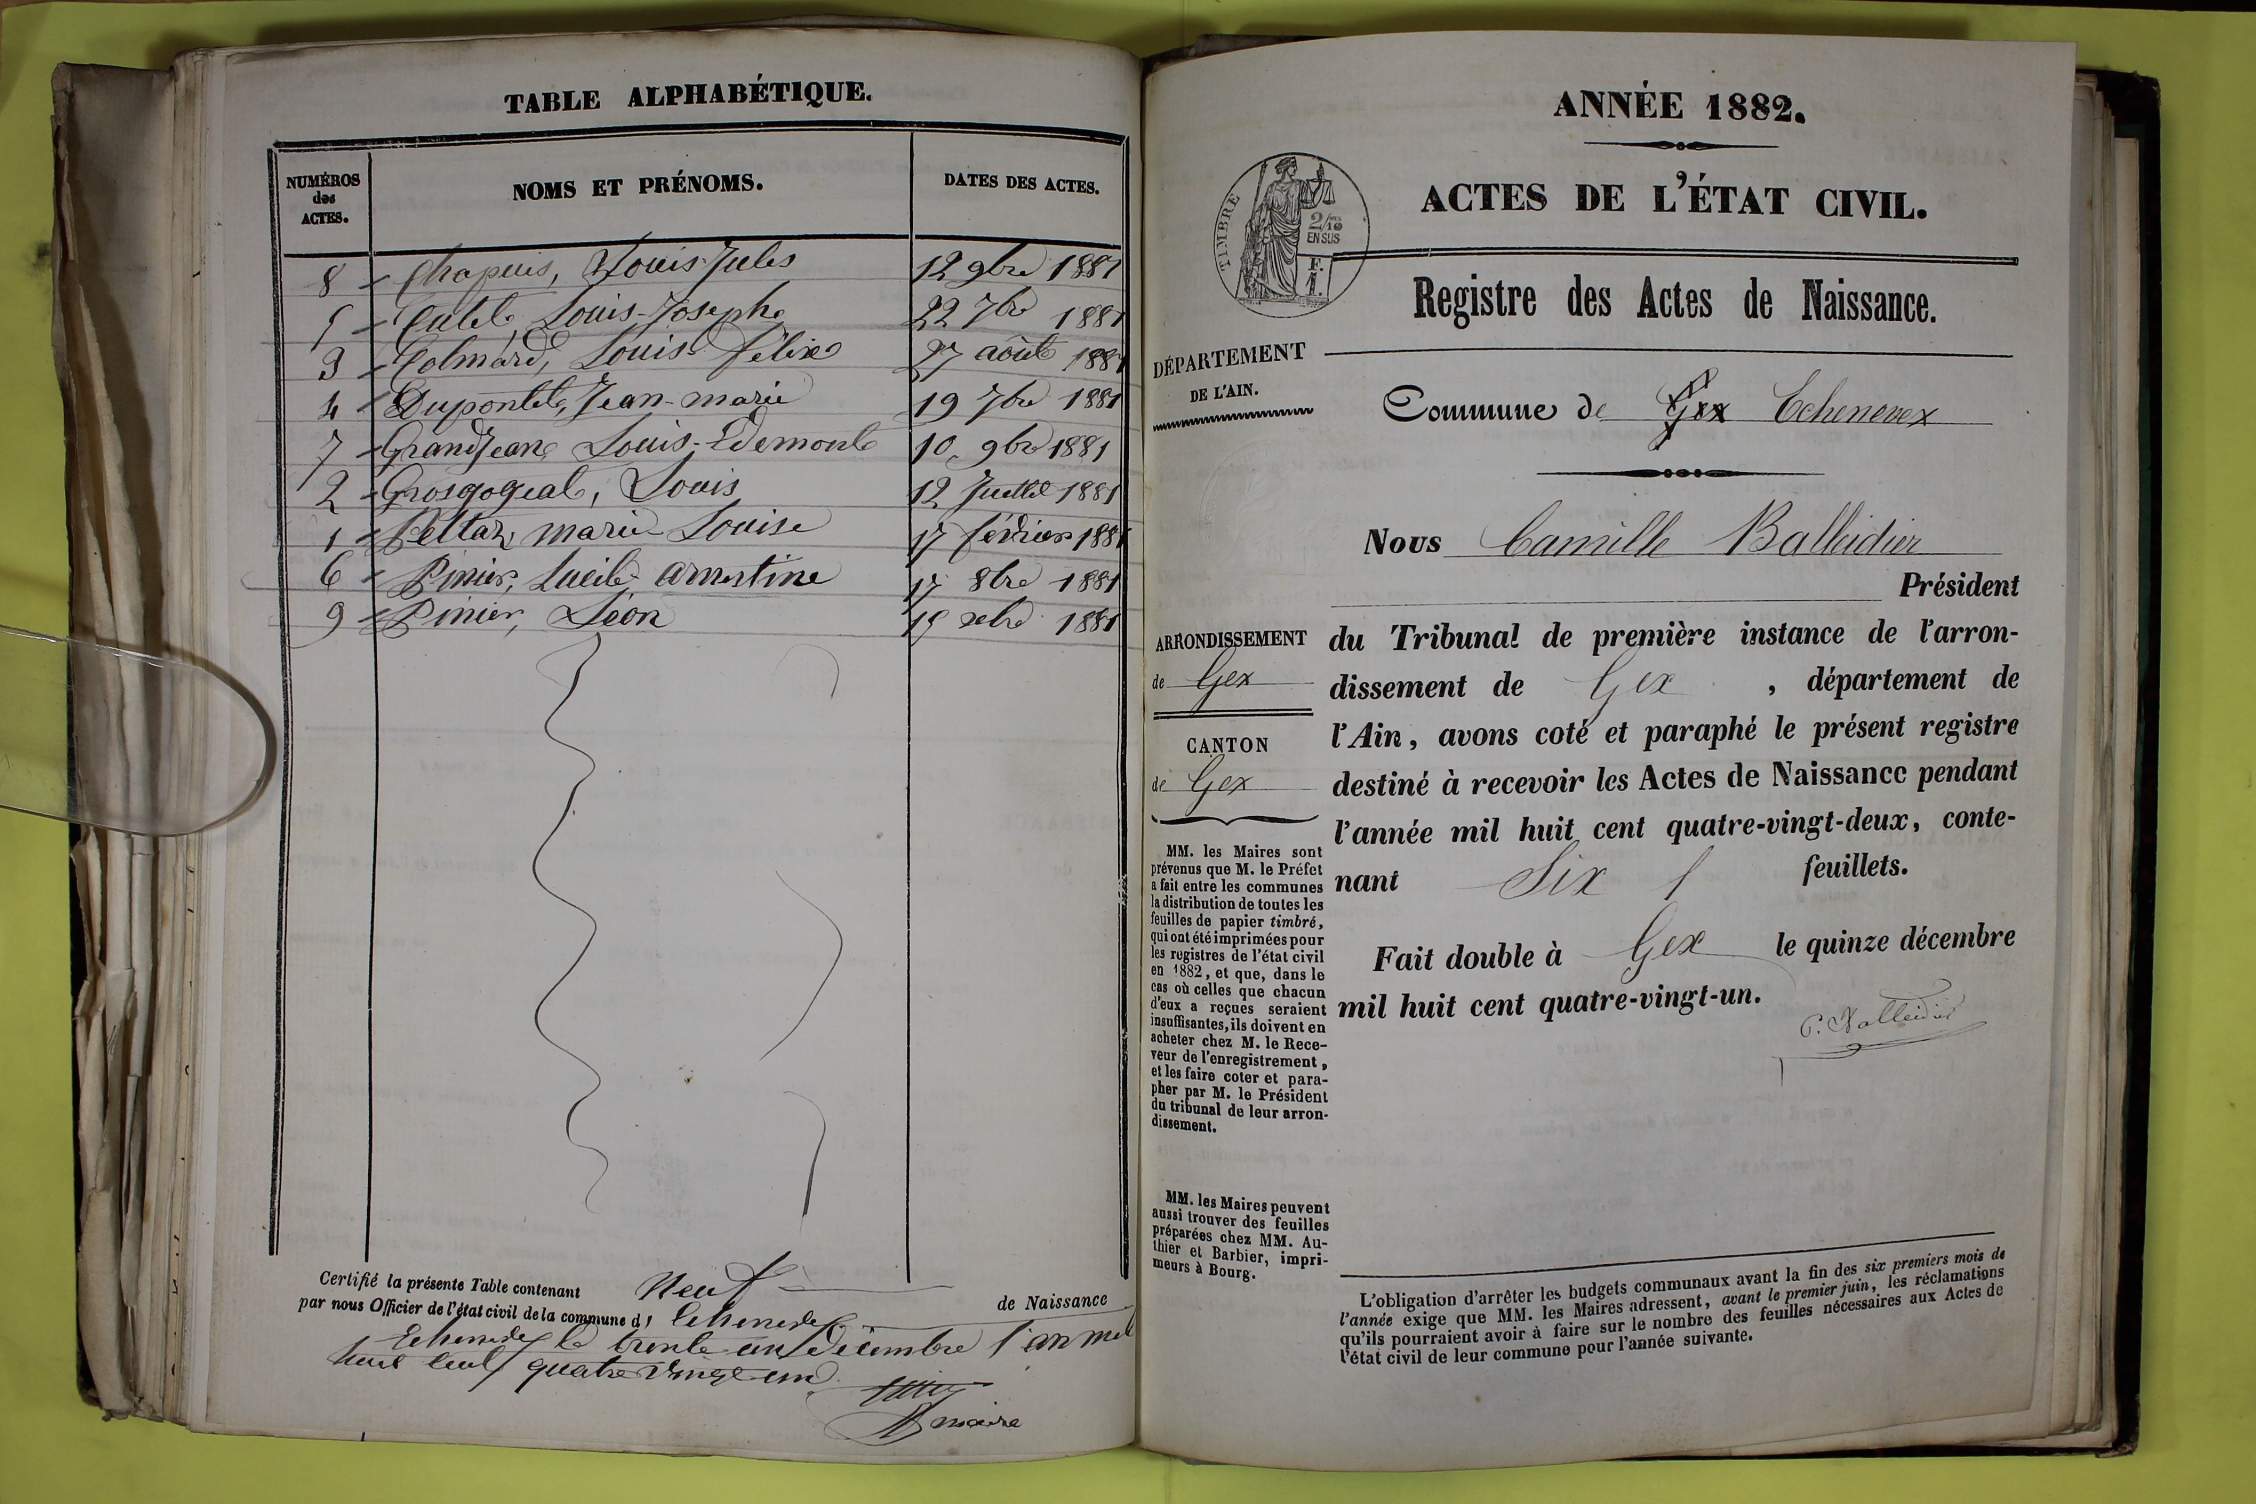 TABLE ALPHABÉTIQUE.
NUMÉROS
des
ACTES.
NOMS ET PRÉNOMS.
DATES DES ACTES.
8 = Chapuis, Louis-Jules 12 9bre 1881
5 = Louis-Joseph 22 7bre 1881
3 = Colmard, Louis-Félix 27 août 1881
4 = Dupontet, Jean-marie 19 7bre 1881
7 = Grandjean, Louis-Edemont 10 9bre 1881
2 = Grosgogeat, Louis 12 Juillet 1881
1 = Peltaz, marie-Louise 17 février 1881
6 = Pinier, Lucile armstine 17 8bre 1881
9 = Pinier, Léon 19 xbre 1881
Certifié la présente Table contenant Neuf de Naissance
par nous Officier de l'état civil de la commune d' Echenevex
Echenevex le trente un décembre l'an mil
huit cent quatre vingt un
maire
ANNÉE 1882.
ACTES DE L'ÉTAT CIVIL.
TIMBRE
2/10
EN SUS
F.
1.
Registre des Actes de Naissance.
DÉPARTEMENT
DE L'AIN.
Commune de Gex Echenevex
Nous Camille Balleidier
Président
du Tribunal de première instance de l'arron-
dissement de Gex, département de
l'Ain, avons coté et paraphé le présent registre
destiné à recevoir les Actes de Naissance pendant
l'année mil huit cent quatre-vingt-deux, conte-
nant Six feuillets.
Fait double à Gex le quinze décembre
mil huit cent quatre-vingt-un.
C. Balleidier
ARRONDISSEMENT
de Gex
CANTON
de Gex
MM. les Maires sont
prévenus que M. le Préfet
a fait entre les communes
la distribution de toutes les
feuilles de papier timbré,
qui ont été imprimées pour
les registres de l'état civil
en 1882, et que, dans le
cas où celles que chacun
d'eux a reçues seraient
insuffisantes, ils doivent en
acheter chez M. le Rece-
veur de l'enregistrement,
et les faire coter et para-
pher par M. le Président
du tribunal de leur arron-
dissement.
MM. les Maires peuvent
aussi trouver des feuilles
préparées chez MM. Au-
thier et Barbier, impri-
meurs à Bourg.
L'obligation d'arrêter les budgets communaux avant la fin des six premiers mois de
l'année exige que MM. les Maires adressent, avant le premier juin, les réclamations
qu'ils pourraient avoir à faire sur le nombre des feuilles nécessaires aux Actes de
l'état civil de leur commune pour l'année suivante.